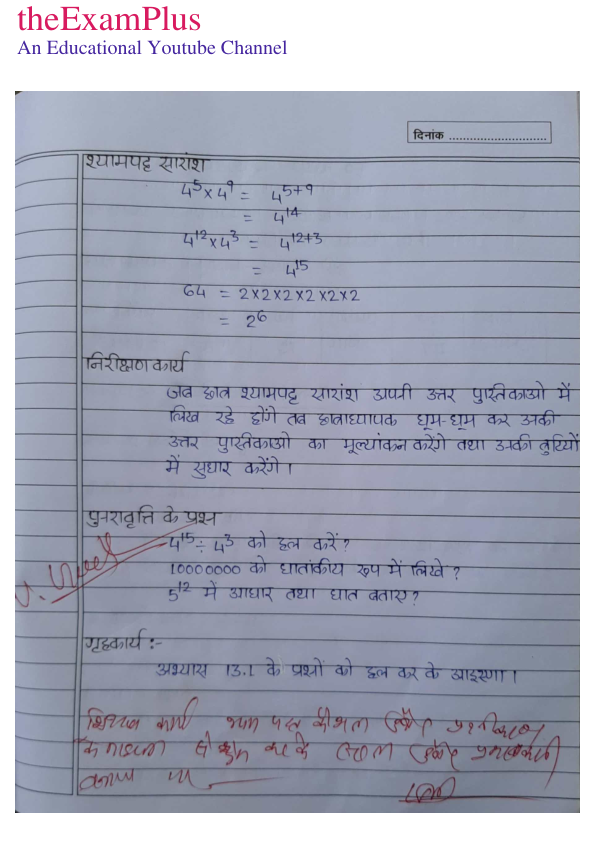 theExamPlus
An Educational Youtube Channel
दिनांक ............................
श्यामपट्ट सारांश
4⁵ x 4⁹ = 4⁵⁺⁹
= 4¹⁴
4¹² x 4³ = 4¹²⁺³
= 4¹⁵
64 = 2x2x2x2x2x2
= 2⁶
निरीक्षण कार्य
जब छात्र श्यामपट्ट सारांश अपनी उत्तर पुस्तिकाओ में
लिख रहे होंगे तब छात्राध्यापक घूम-घूम कर उनकी
उत्तर पुस्तिकाओ का मूल्यांकन करेंगे तथा उनकी त्रुटियों
में सुधार करेंगे ।
पुनरावृत्ति के प्रश्न
4¹⁵ ÷ 4³ को हल करें ?
10000000 को घातांकीय रूप में लिखे ?
5¹² में आधार तथा घात बताए ?
गृहकार्य :-
अभ्यास 13.1 के प्रश्नों को हल कर के आइएगा ।
शिक्षण कार्य
के